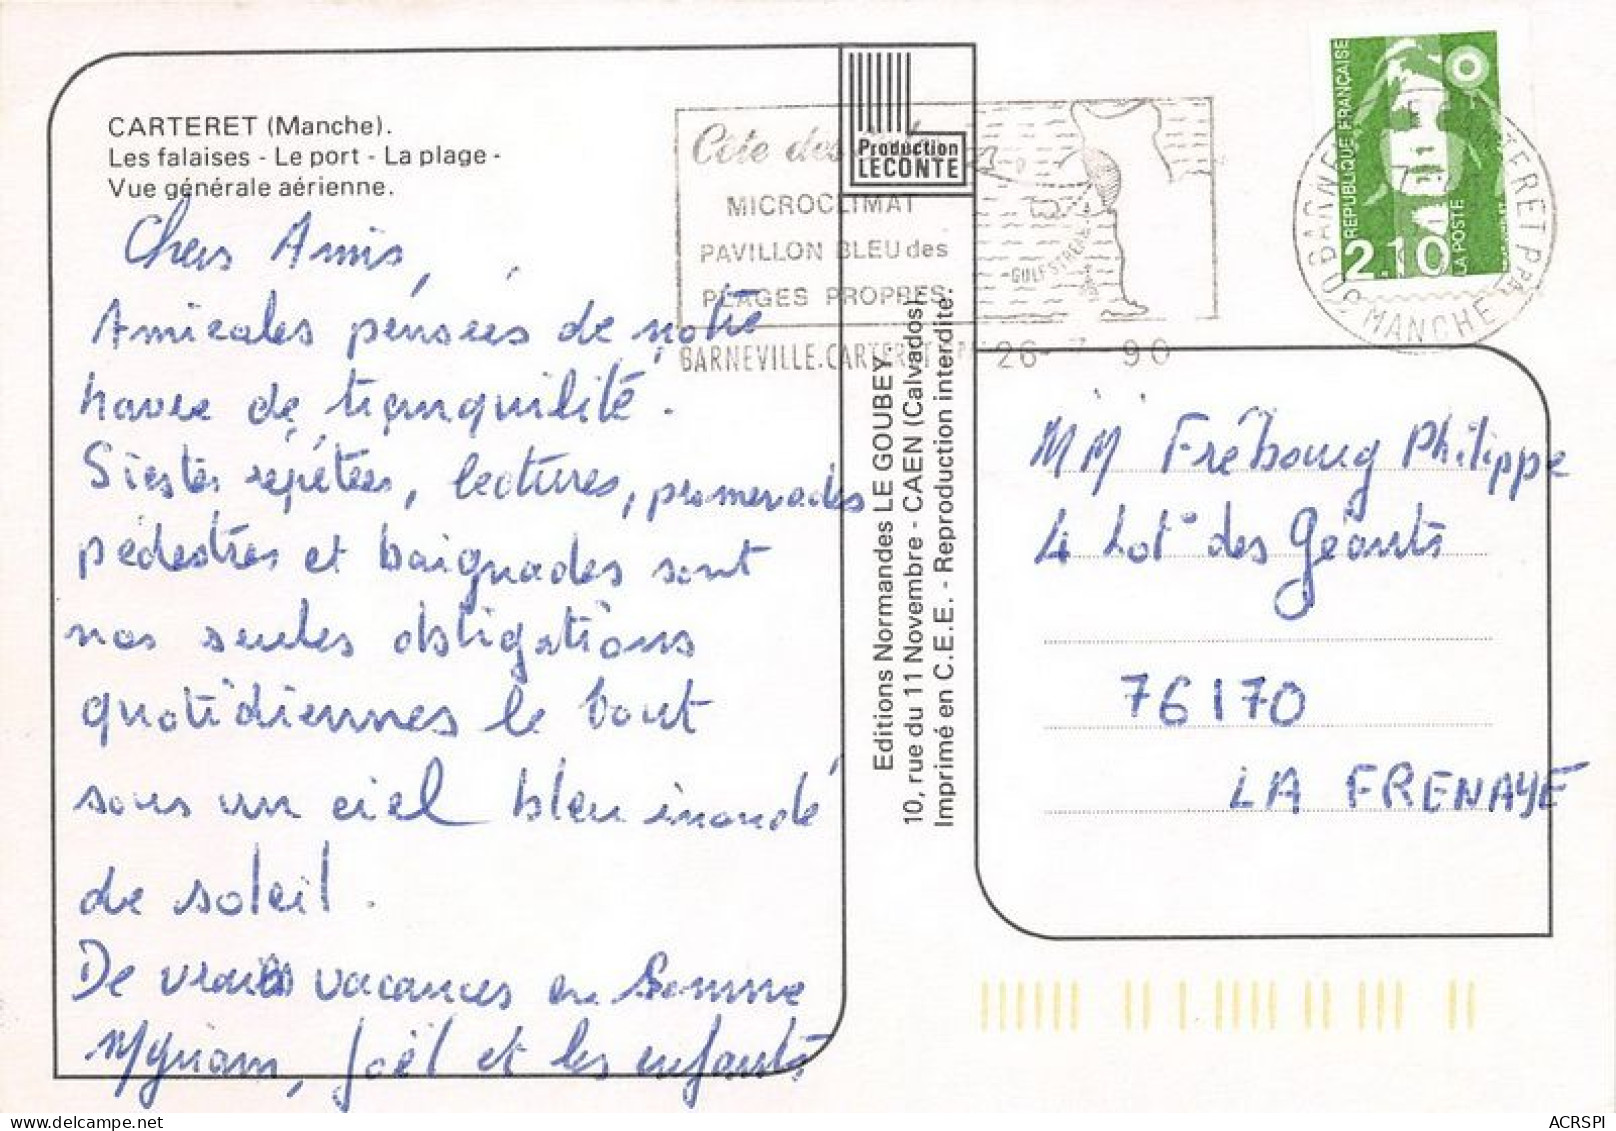 CARTERET (Manche).
Les falaises - Le port - La plage -
Vue générale aérienne.
Chers Amis,
Amicales pensées de notre
havre de tranquilité.
Siestes répétées, lectures, promenades
pédestres et baignades sont
nos seules obligations
quotidiennes le tout
sous un ciel bleu inondé
de soleil.
De vraies vacances en somme
Myriam, Joël et les enfants
Production
LECONTE
Côte des
MICROCLIMAT
PAVILLON BLEU des
PLAGES PROPRES
GULF STREAM
BARNEVILLE.CARTERET
26-7-90
Editions Normandes LE GOUBEY
10, rue du 11 Novembre - CAEN (Calvados).
Imprimé en C.E.E. - Reproduction interdite.
REPUBLIQUE FRANÇAISE
2.10
LA POSTE
MANCHE
MM Frébourg Philippe
4 Lot° des Géants
76170
LA FRENAYE
ACRSPI